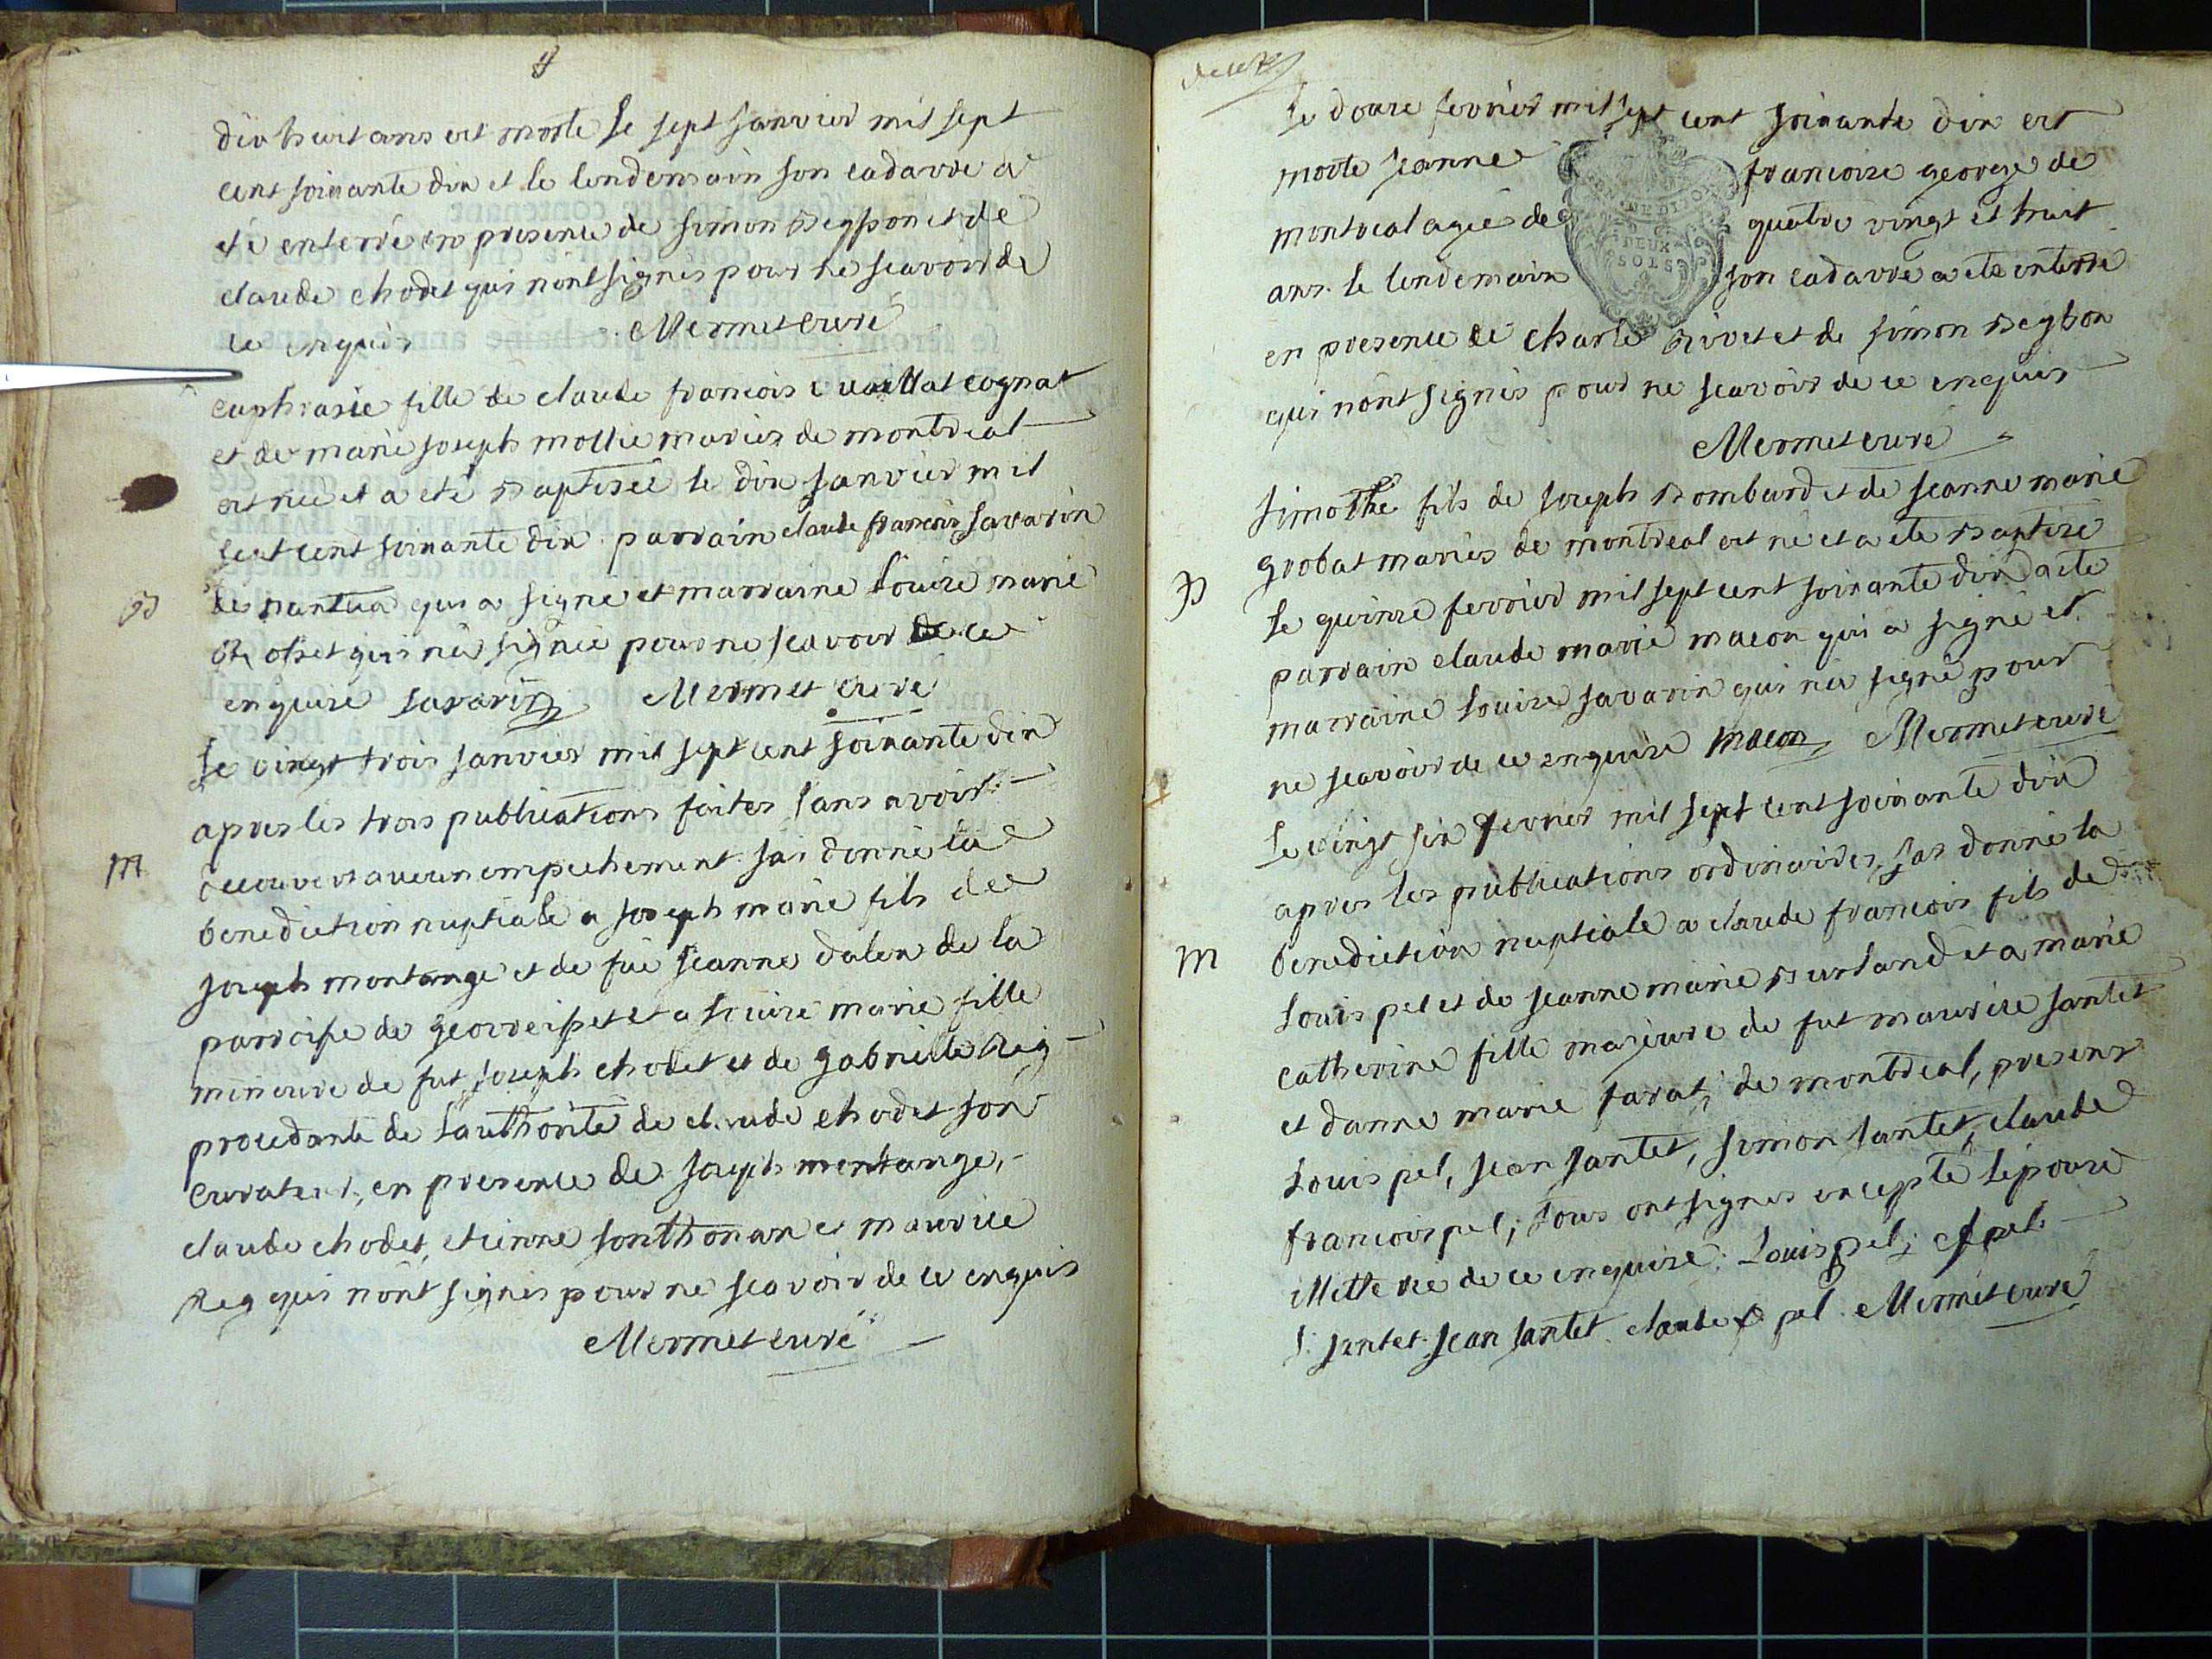 dix huit ans est morte le sept janvier mil sept
cent soixante dix et le lendemain son cadavre a
eté enterré en presence de simon begbon et de
claude chodet qui nont signes pour ne scavoir de
ce enquis Mermet curé
euphrasie fille de claude francois cognat
et de marie joseph mollie mariés de montreal
est née et a eté baptisée le dix janvier mil
sept cent soixante dix parrain claude francois savarin
B
de nantua qui a signé et marraine louise marie
qui na signée pour ne scavoir de ce
enquise savarin Mermet curé
le vingt trois janvier mil sept cent soixante dix
apres les trois publications faites sans avoir
M
decouvert aucun empechement jai donné la
benediction nuptiale a joseph marie fils de
joseph montange et de fue jeanne dalex de la
parroisse de georreisset et a louise marie fille
mineure de fut joseph chodet et de gabrielle Reg
procedante de lauthorité de claude chodet son
curateur, en presence de joseph montange,
claude chodet, etienne sonthonax et maurice
Reg qui nont signes pour ne scavoir de ce enquis
Mermet curé
le douze fevrier mil sept cent soixante dix est
morte jeanne francoise george de
montreal agée de quatre vingt et huit
ans le lendemain son cadavre a ete enterré
DEUX
SOLS
en presence de charle Rivet et de simon begbon
qui nont signés pour ne scavoir de ce enquis
Mermet curé
simothé fils de joseph bombard et de jeanne marie
grobat mariés de montreal est né et a eté baptisé
B
le quinze fevrier mil sept cent soixante dix a eté
parrain claude marie macon qui a signé et
marraine louise savarin qui na signé pour
ne scavoir de ce enquise macon Mermet curé
le vingt six fevrier mil sept cent soixante dix
apres les publications ordinaires, jai donné la
M
benediction nuptiale a claude francois fils de
louis pel et de jeanne marie burland et a marie
catherine fille majeure de fut maurice santet
et danne marie farat, de montreal, presens
louis pel, jean santet, simon santet, claude
francois pel; tous ont signes excepté lépouse
illetteree de ce enquise. Louis pel; cf pel
s. santet. jean santet. claude pel. Mermet curé